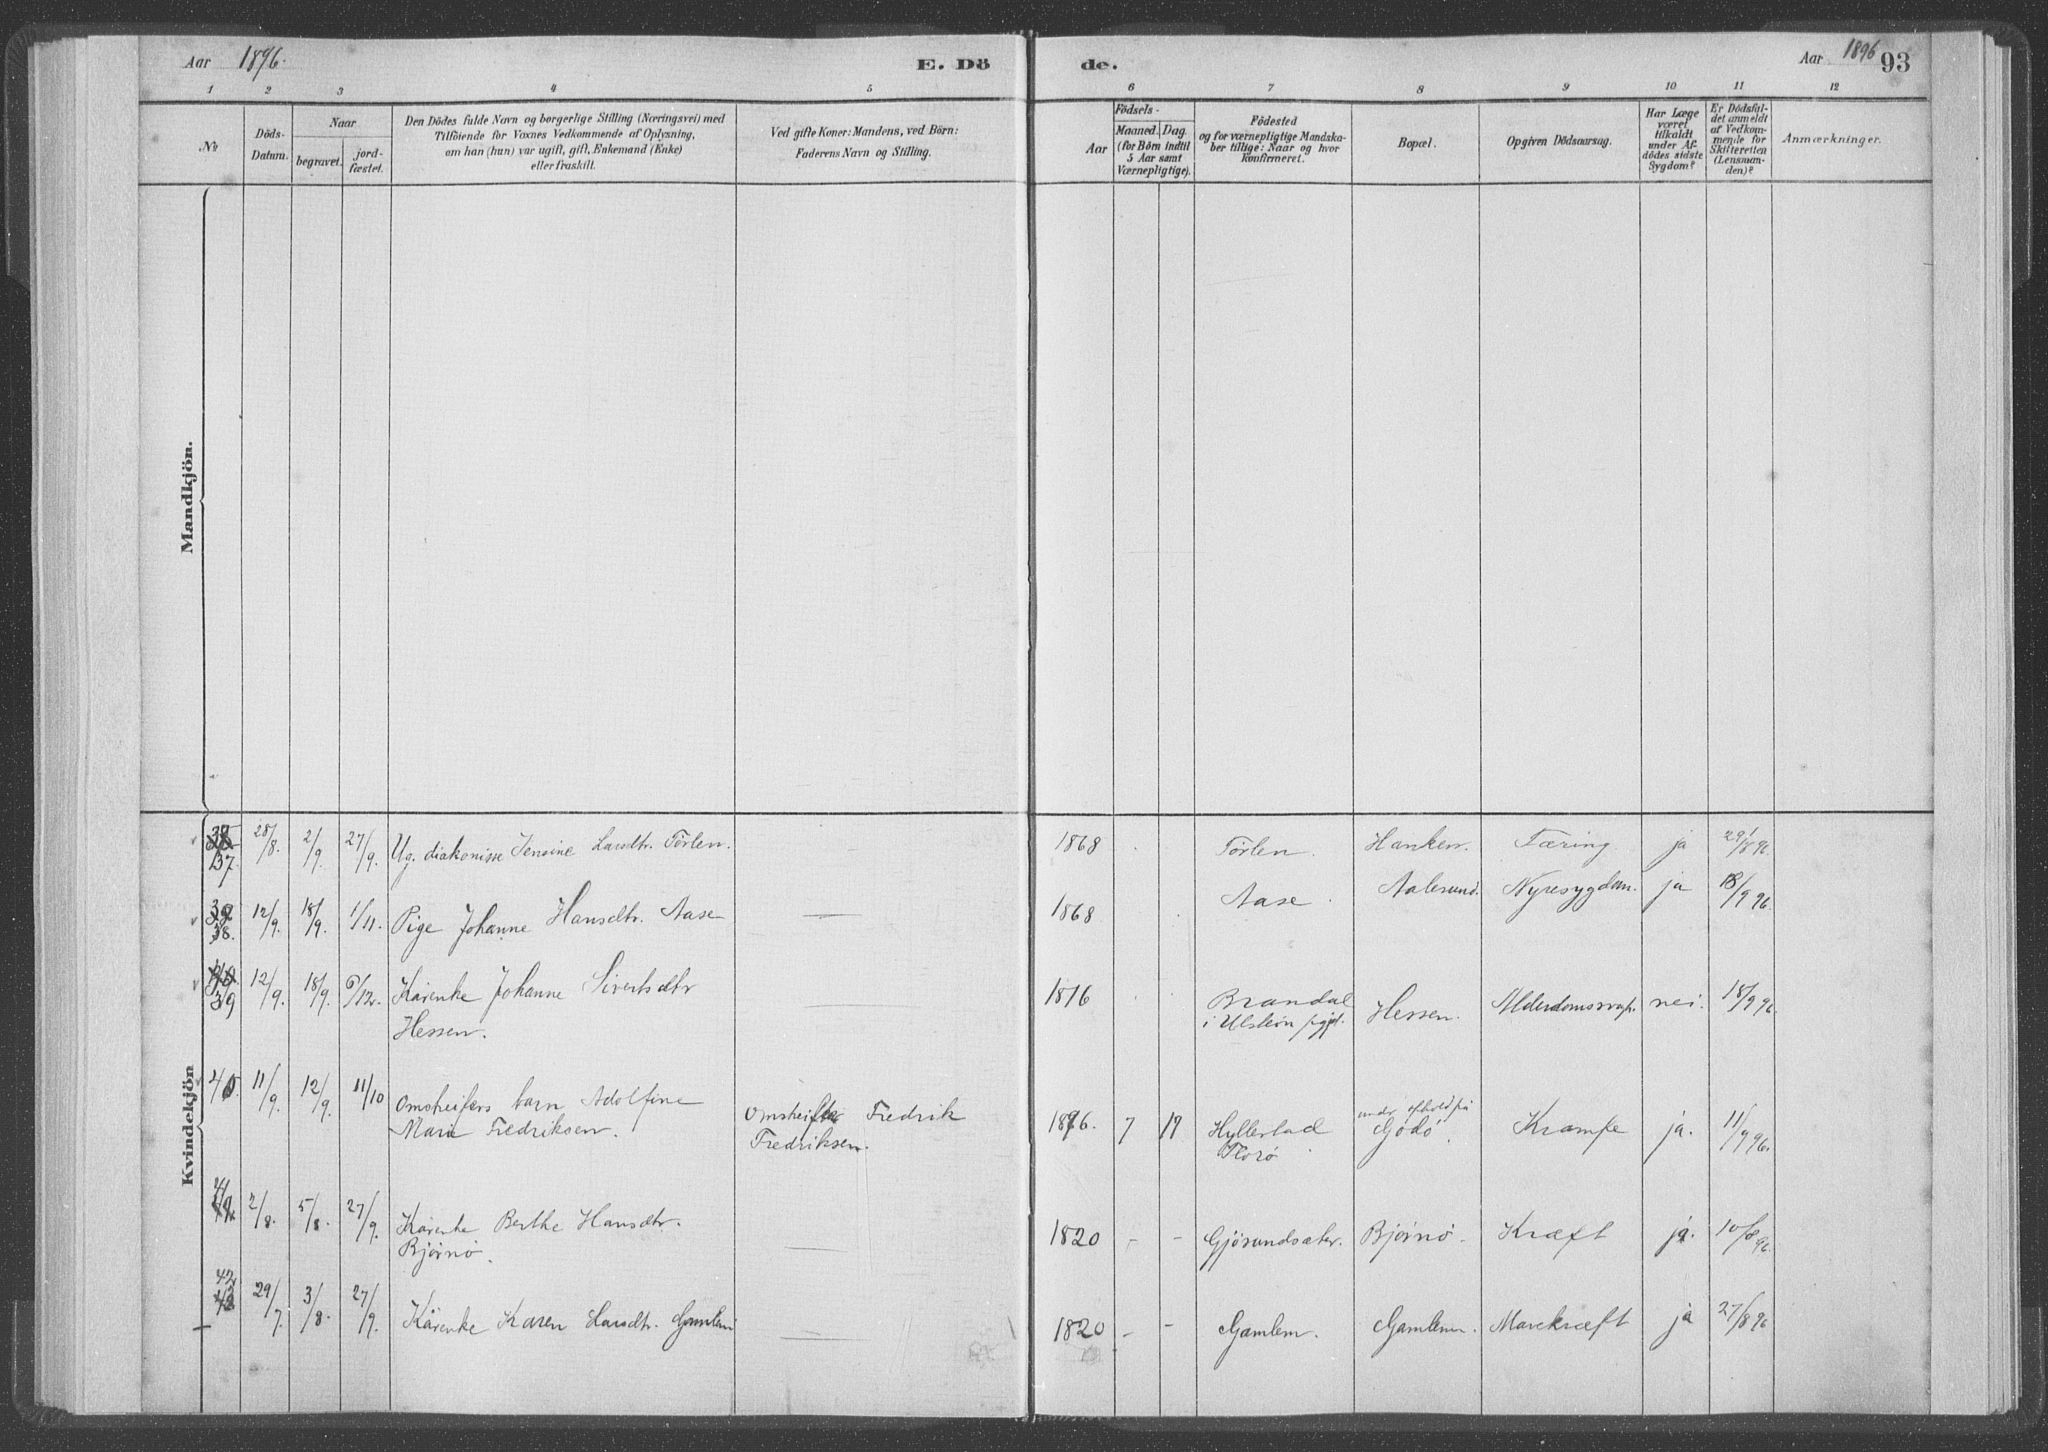 Aar 1896.
E. Dö
de.
Aar 1896 93
1 2 3 4 5 6 7 8 9 10 11 12
№
Döds-
Datum.
Naar
begravet.
jord-
fæstet.
Den Dödes fulde Navn og borgerlige Stilling (Næringsvei) med
Tilföiende for Voxnes Vedkommende af Oplysning,
om han (hun) var ugift, gift, Enkemand (Enke)
eller fraskilt.
Ved gifte Koner: Mandens, ved Börn:
Faderens Navn og Stilling.
Födsels-
Aar
Maaned. Dag.
(for Börn indtil
5 Aar samt
Værnepligtige).
Födested
og for værnepligtige Mandska-
ber tillige: Naar og hvor
Konfirmeret.
Bopæl.
Opgiven Dödsaarsag.
Har Læge
været
tilkaldt
under Af-
dödes sidste
Sygdom?
Er Dödsfal-
det anmeldt
af Vedkom-
mende for
Skifteretten
(Lensman-
den)?
Anmærkninger.
Mandkjön.
Kvindekjön
37. 28/8. 2/9. 27/9. Ug. diakonisse Jensine Larsdtr. Tørlen. — 1868 Tørlen. Hanken. Tæring ja 29/8 96.
38. 12/9. 18/9. 1/11. Pige Johanne Hansdtr. Aase — 1868 Aase. Aalesund. Nyresygdom. ja 18/9 96.
39 12/9. 18/9. 6/12. Kårenke Johanne Sivertsdtr — 1816 Brandal Hessen. nei. 18/9 96.
Hessen. i Ulstein
40 11/9. 12/9. 11/10 Omstreifers barn Adolfine Omstreifer Fredrik 1896. 7 19 Hyllestad under ophold på Krampe ja. 11/9 96.
Marie Fredriksen. Fredriksen. Florø Gódó.
41 2/8. 5/8. 27/9. Kårenke Berthe Hansdtr. — 1820 - - Bjørnö. Kræft ja. 10/8 96.
Bjørnö.
42 29/7. 3/8. 27/9. Kårenke Karen Larsdtr. Gamlem — 1820 - - Gamlem. Gamlem. Mavekræft ja 27/8 96